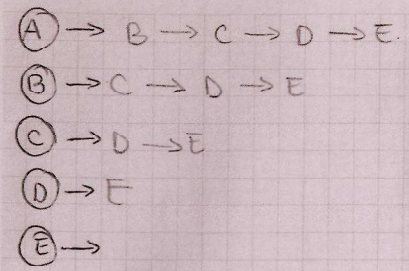 A → B → C → D → E.
B → C → D → E
C → D → E
D → E
E →